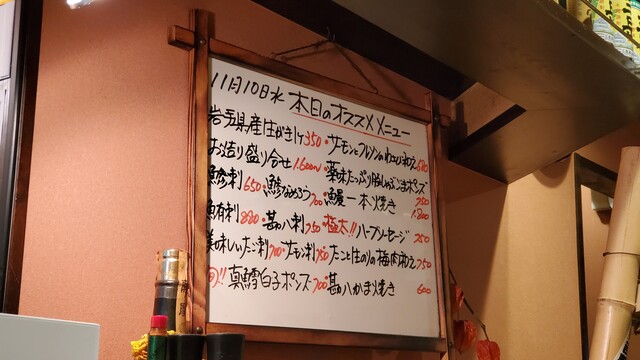 11月10日水 本日のオススメメニュー
岩手県産生がき1ケ350・サーモンとフルーツのわさび和え680
お造り盛り合せ1.600〜・薬味たっぷり豚しゃぶごまポンズ750
鯵刺650・鯵なめろう700・鰻一本焼き1.800
刺880・甚八刺750・極太!!ハーブソーセージ750
美味しいたこ刺700・サーモン刺750・たこと生のりの梅肉和え750
旬!!真鱈白子ポンズ700・甚八かま焼き600